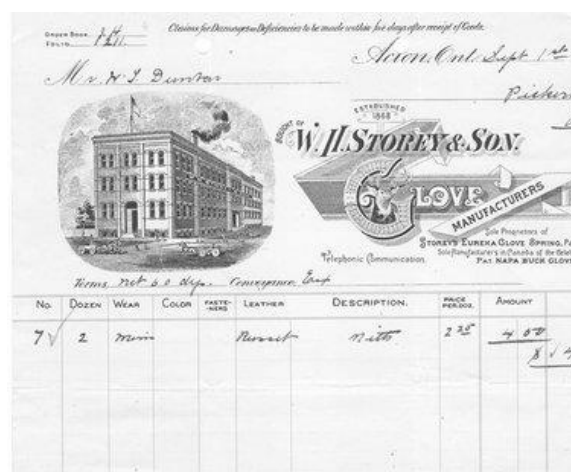 Claims for Damages or Deficiencies to be made within five days after receipt of Goods.
ORDER BOOK
FOLIO
Acton, Ont. Sept 1st
Mr. W J. Dunbar
Picker
ESTABLISHED
1868
BOUGHT OF
W. H. STOREY & SON.
GLOVE
MANUFACTURERS
Sole Proprietors of
STOREY'S EUREKA GLOVE SPRING, PA
Sole Manufacturers in Canada of the Celeb
PAT NAPA BUCK GLOV
Telephonic Communication.
Terms, net 60 dys. Conveyance, Exp
No. DOZEN WEAR COLOR FASTE-NERS LEATHER DESCRIPTION. PRICE PER DOZ. AMOUNT
7 2 Mens Russet Mitts 2 25 4 50